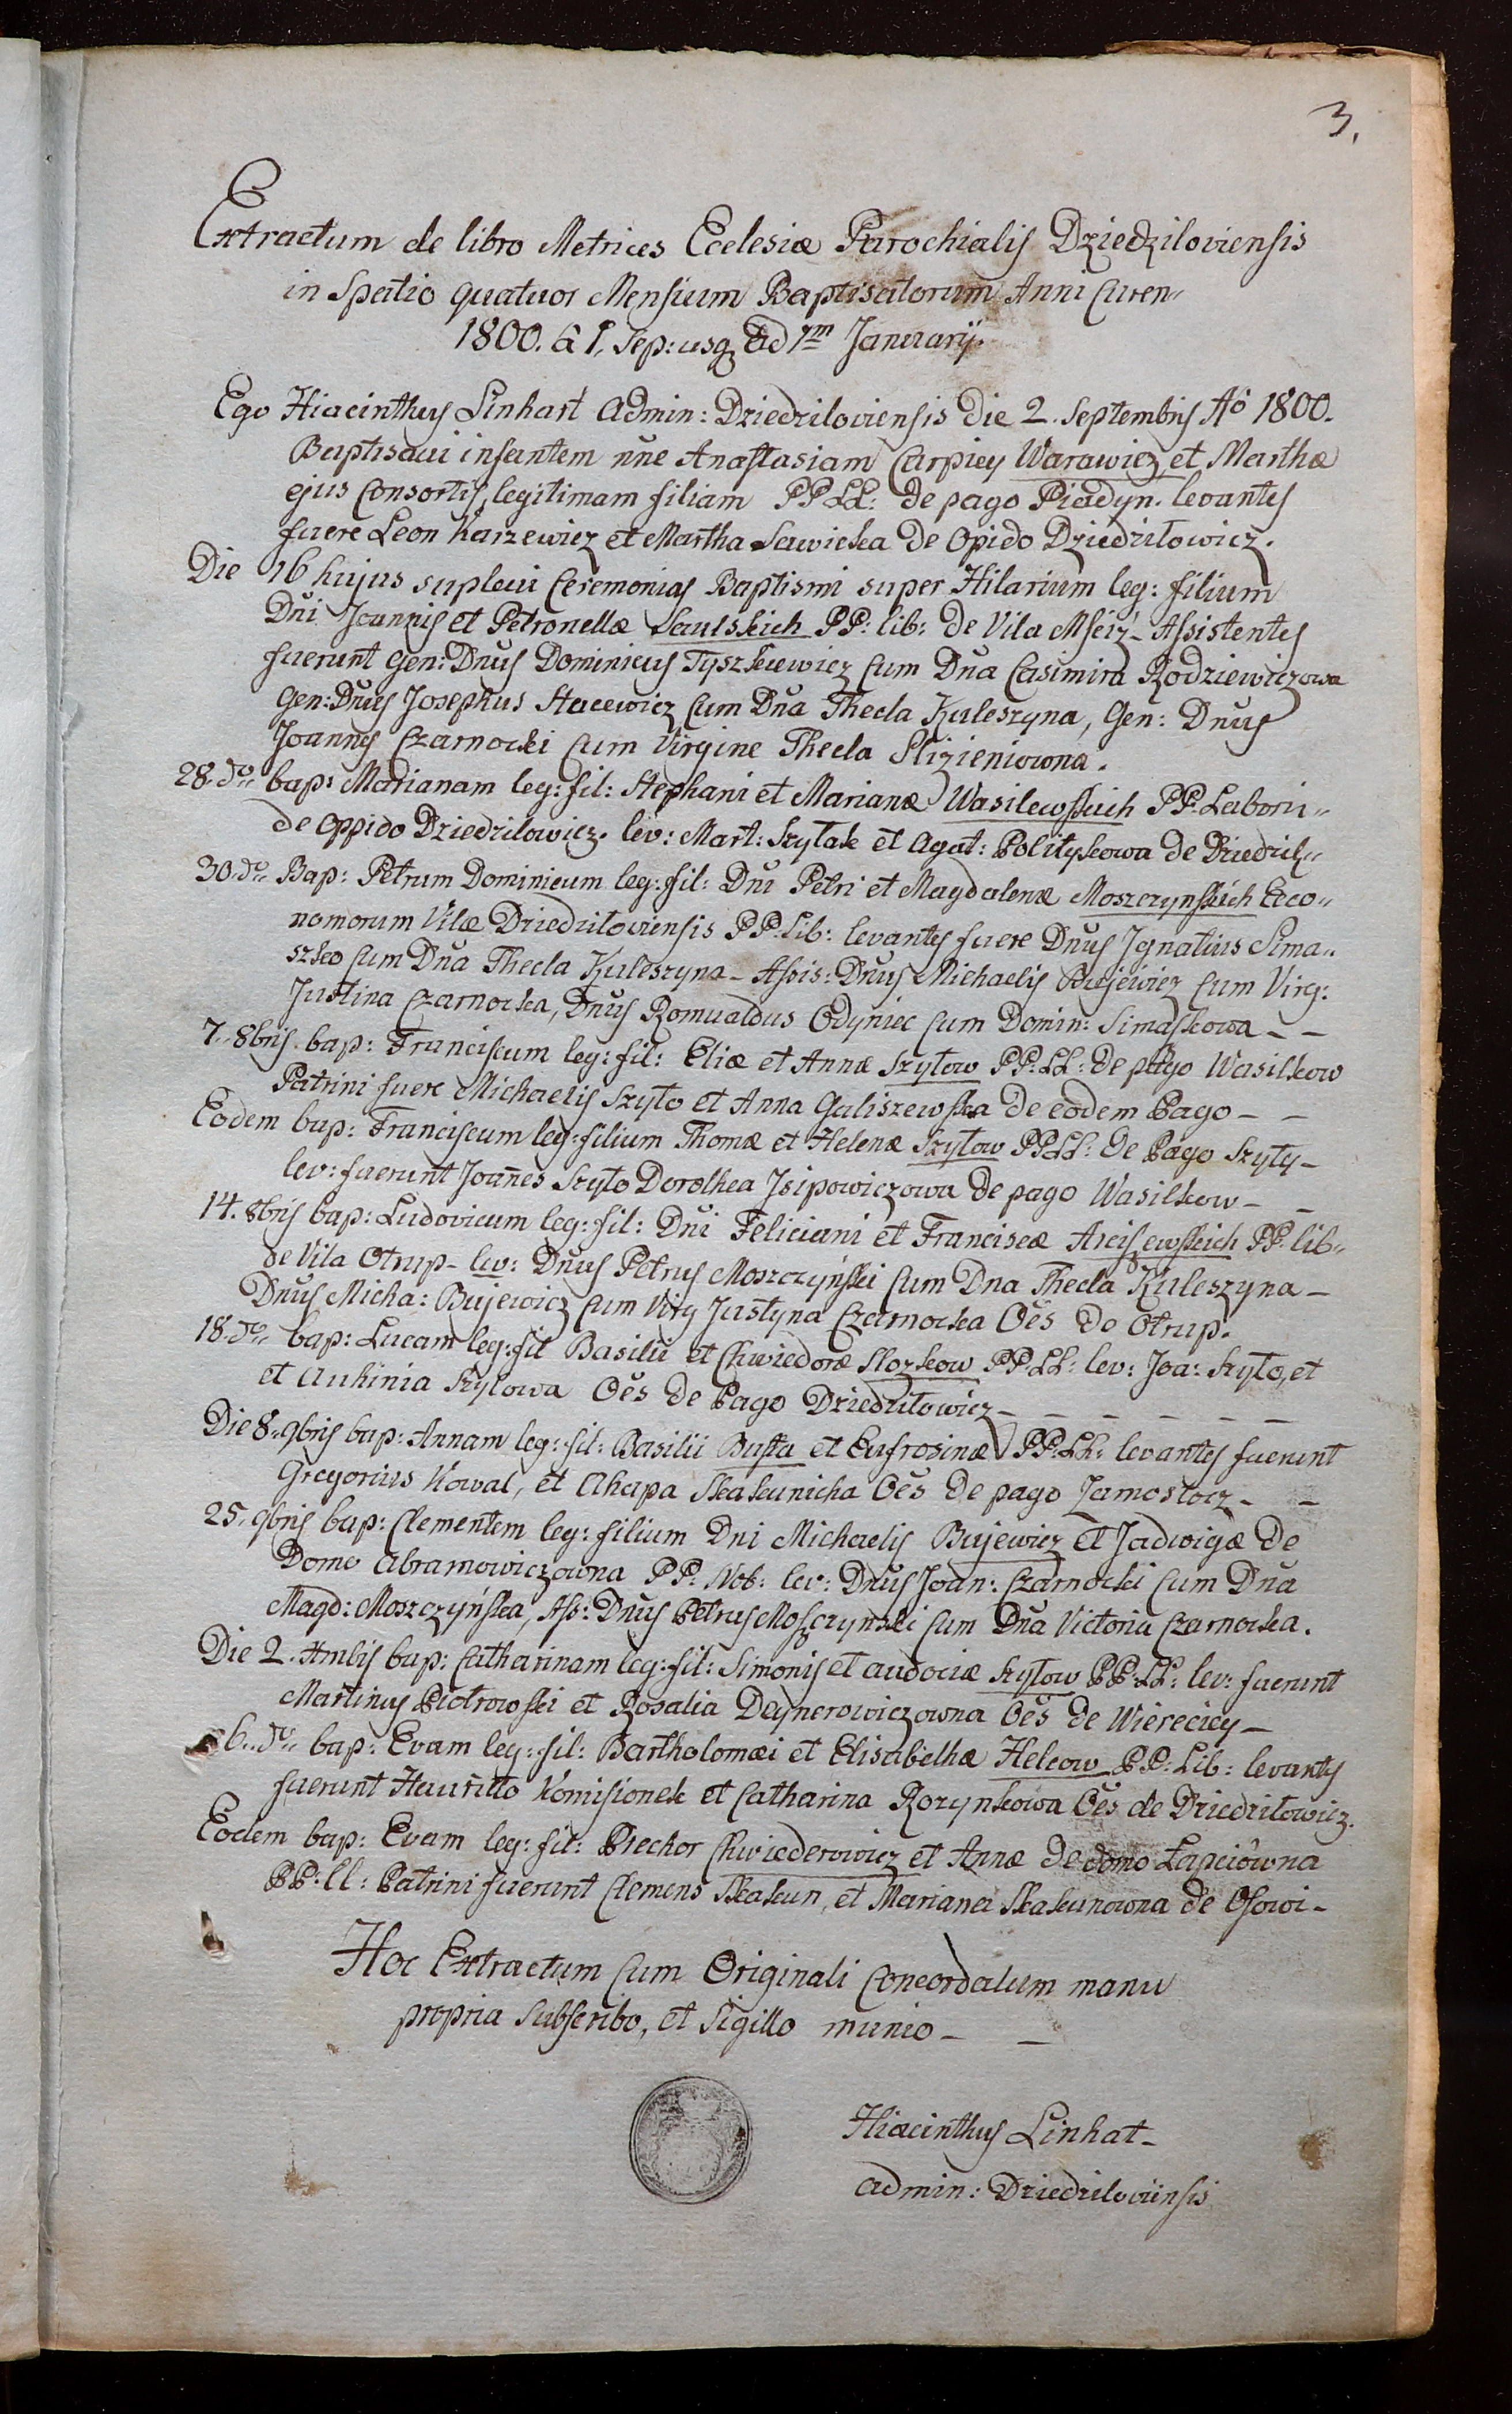 3.
Extractum de libro Metrices Ecelesiæ Parochialis Dziedziloviensis
in Spatio quatuor Mensium Baptisatorum Anni Curen„
1800. a 1. Sep: usq ad 1m Januarij.
Ego Hiacinthus Linhart Admin: Dziedziloviensis Die 2. Septembris Aō 1800.
Baptisavi infantem nñe Anastasiam Carpiey Warawicz et Marthæ
ejus Consortis legitimam filiam PP LL: de pago Piadyn. levantes
fuere Leon Karzewicz et Martha Sawicka de Opido Dziedziłowicz.
Die 16 hujus suplevi Ceremonias Baptismi super Hilarium leg: filium
Dñi Joannis et Petronellæ Saulskich PP: lib: de Vila Mśeiż - Assistentes
fuerunt Gen: Dnus Dominicus Tyszkiewicz cum Dña Casimira Rodziewiczowa
Gen: Dñus Josephus Stacewicz cum Dña Thecla Kuleszyna, Gen: Dñus
Joannes Czarnocki cum Virgine Thecla Slizieniowna.
28. do„ bap: Marianam leg: fil: Stephani et Marianæ Wasilewskich PP: Labori„
de oppido Dziedzilowicz. lev: Mart: Szytak et Agat: Politykowa de Dziedzil„
30. do„ Bap: Petrum Dominicum leg: fil: Dñi Petri et Magdalenæ Moszczynskich Eco„
nomorum Vilæ Dziedziłoviensis PP: Lib: levantes fuere Dñus Ignatius Sima„
szko cum Dña Thecla Kuleszyna - Assis: Dñus Michaelis Bujewicz cum Virg:
Justina Czarnocka, Dñus Romualdus Odyniec cum Domin: Simaskowa - -
7. 8bris bap: Franciscum leg: fil: Eliæ et Annæ Szytow PP: LL: de pago Wasilkow
Patrini fuere Michaelis Szyto et Anna Galiszewska de eodem Pago - -
Eodem bap: Franciscum leg: filium Thomæ et Helenæ Szytow PP LL: de Pago Szyty -
lev: fuerunt Joañes Szyto Dorothea Isipowiczowa de pago Wasilkow - -
14. 8bris bap: Ludovicum leg: fil: Dñi Feliciani et Franciscæ Arciszewskich PP: lib„
de Vila Otrup - lev: Dñus Petrus Moszczyński cum Dna Thecla Kuleszyna -
Dñus Micha: Bujewicz cum Virg Justyna Czarnocka Oēs de Otrup.
18. do„ bap: Lucam leg: fil Basilii et Chwiedoræ Slozkow PP: LL: lev: Joa: Szyto, et
et Auhinia Szytowa Oēs de Pago Dziedziłowicz - - - - - -
Die 8„ 9bris bap: Annam leg: fil: Basilii Busta et Eufrosinæ PP: LL: levantes fuerunt
Gregorius Kowal, et Ahapa Skakunicha Oēs de pago Zamostocz - -
25. 9bris bap: Clementem leg: filium Dni Michaelis Bujewicz et Jadwigæ de
Domo Abramowiczowna PP: Nob: lev: Dñus Joan: Czarnocki cum Dña
Magd: Moszczyńska, Ass: Dñus Petrus Moszczynski cum Dña Victoria Czarnocka.
Die 2. Xmbis bap: Catharinam leg: fil: Simonis et Audociæ Szytow PP: LL: lev: fuerunt
Martinus Piotrowski et Rosalia Deynerowiczowna Oēs de Wierecicy -
6. do„ bap: Evam leg: fil: Bartholomæi et Elisabethæ Helcow PP: Lib: levantes
fuerunt Hauriło Komisionek et Catharina Rozynkowa Oēs de Dziedziłowicz.
Eodem bap: Evam leg: fil: Prechor Chwiederowicz et Annæ de domo Łapciôwna
PP: LL: Patrini fuerunt Clemens Skakun, et Mariana Skakunowna de Osowi -
Hoc Extractum cum Originali Concordatum manu
propria Subscribo, et Sigillo munio - -
Hiacinthus Linhat -
Admin: Dziedziloviensis